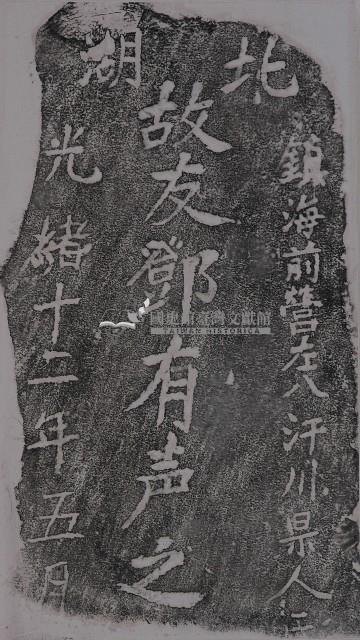 湖北
鎮海前營左八汗川県人
故友鄧有声之
光緒十二年五月
國史館臺灣文獻館
TAIWAN HISTORICA